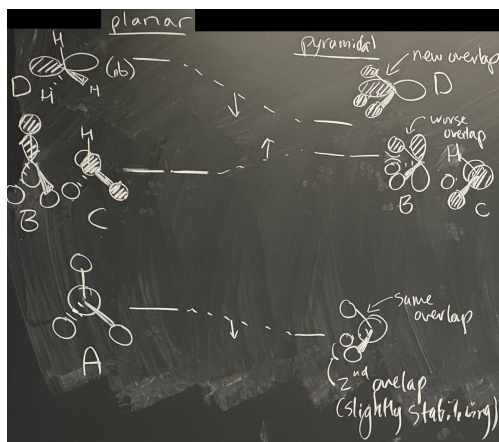 planar
pyramidal
H
(nb)
H
H
D
new overlap
D
worse
overlap
H
H
B
C
B
C
A
same
overlap
2nd overlap
(slightly stabilizing)